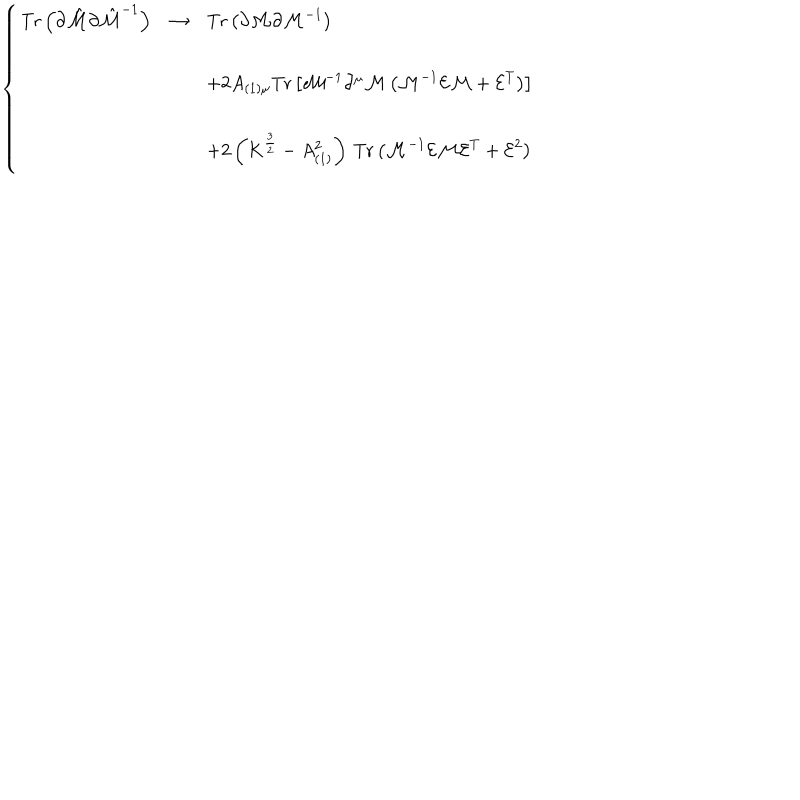 Tr(∂ℳ̂∂ℳ̂⁻¹) → Tr(∂ℳ∂ℳ⁻¹)
+2A₍₁₎μTr[ℳ⁻¹∂^μℳ(ℳ⁻¹ℰℳ + ℰᵀ)]
+2(K^{3/2} − A²₍₁₎) Tr(ℳ⁻¹ℰℳℰᵀ + ℰ²)